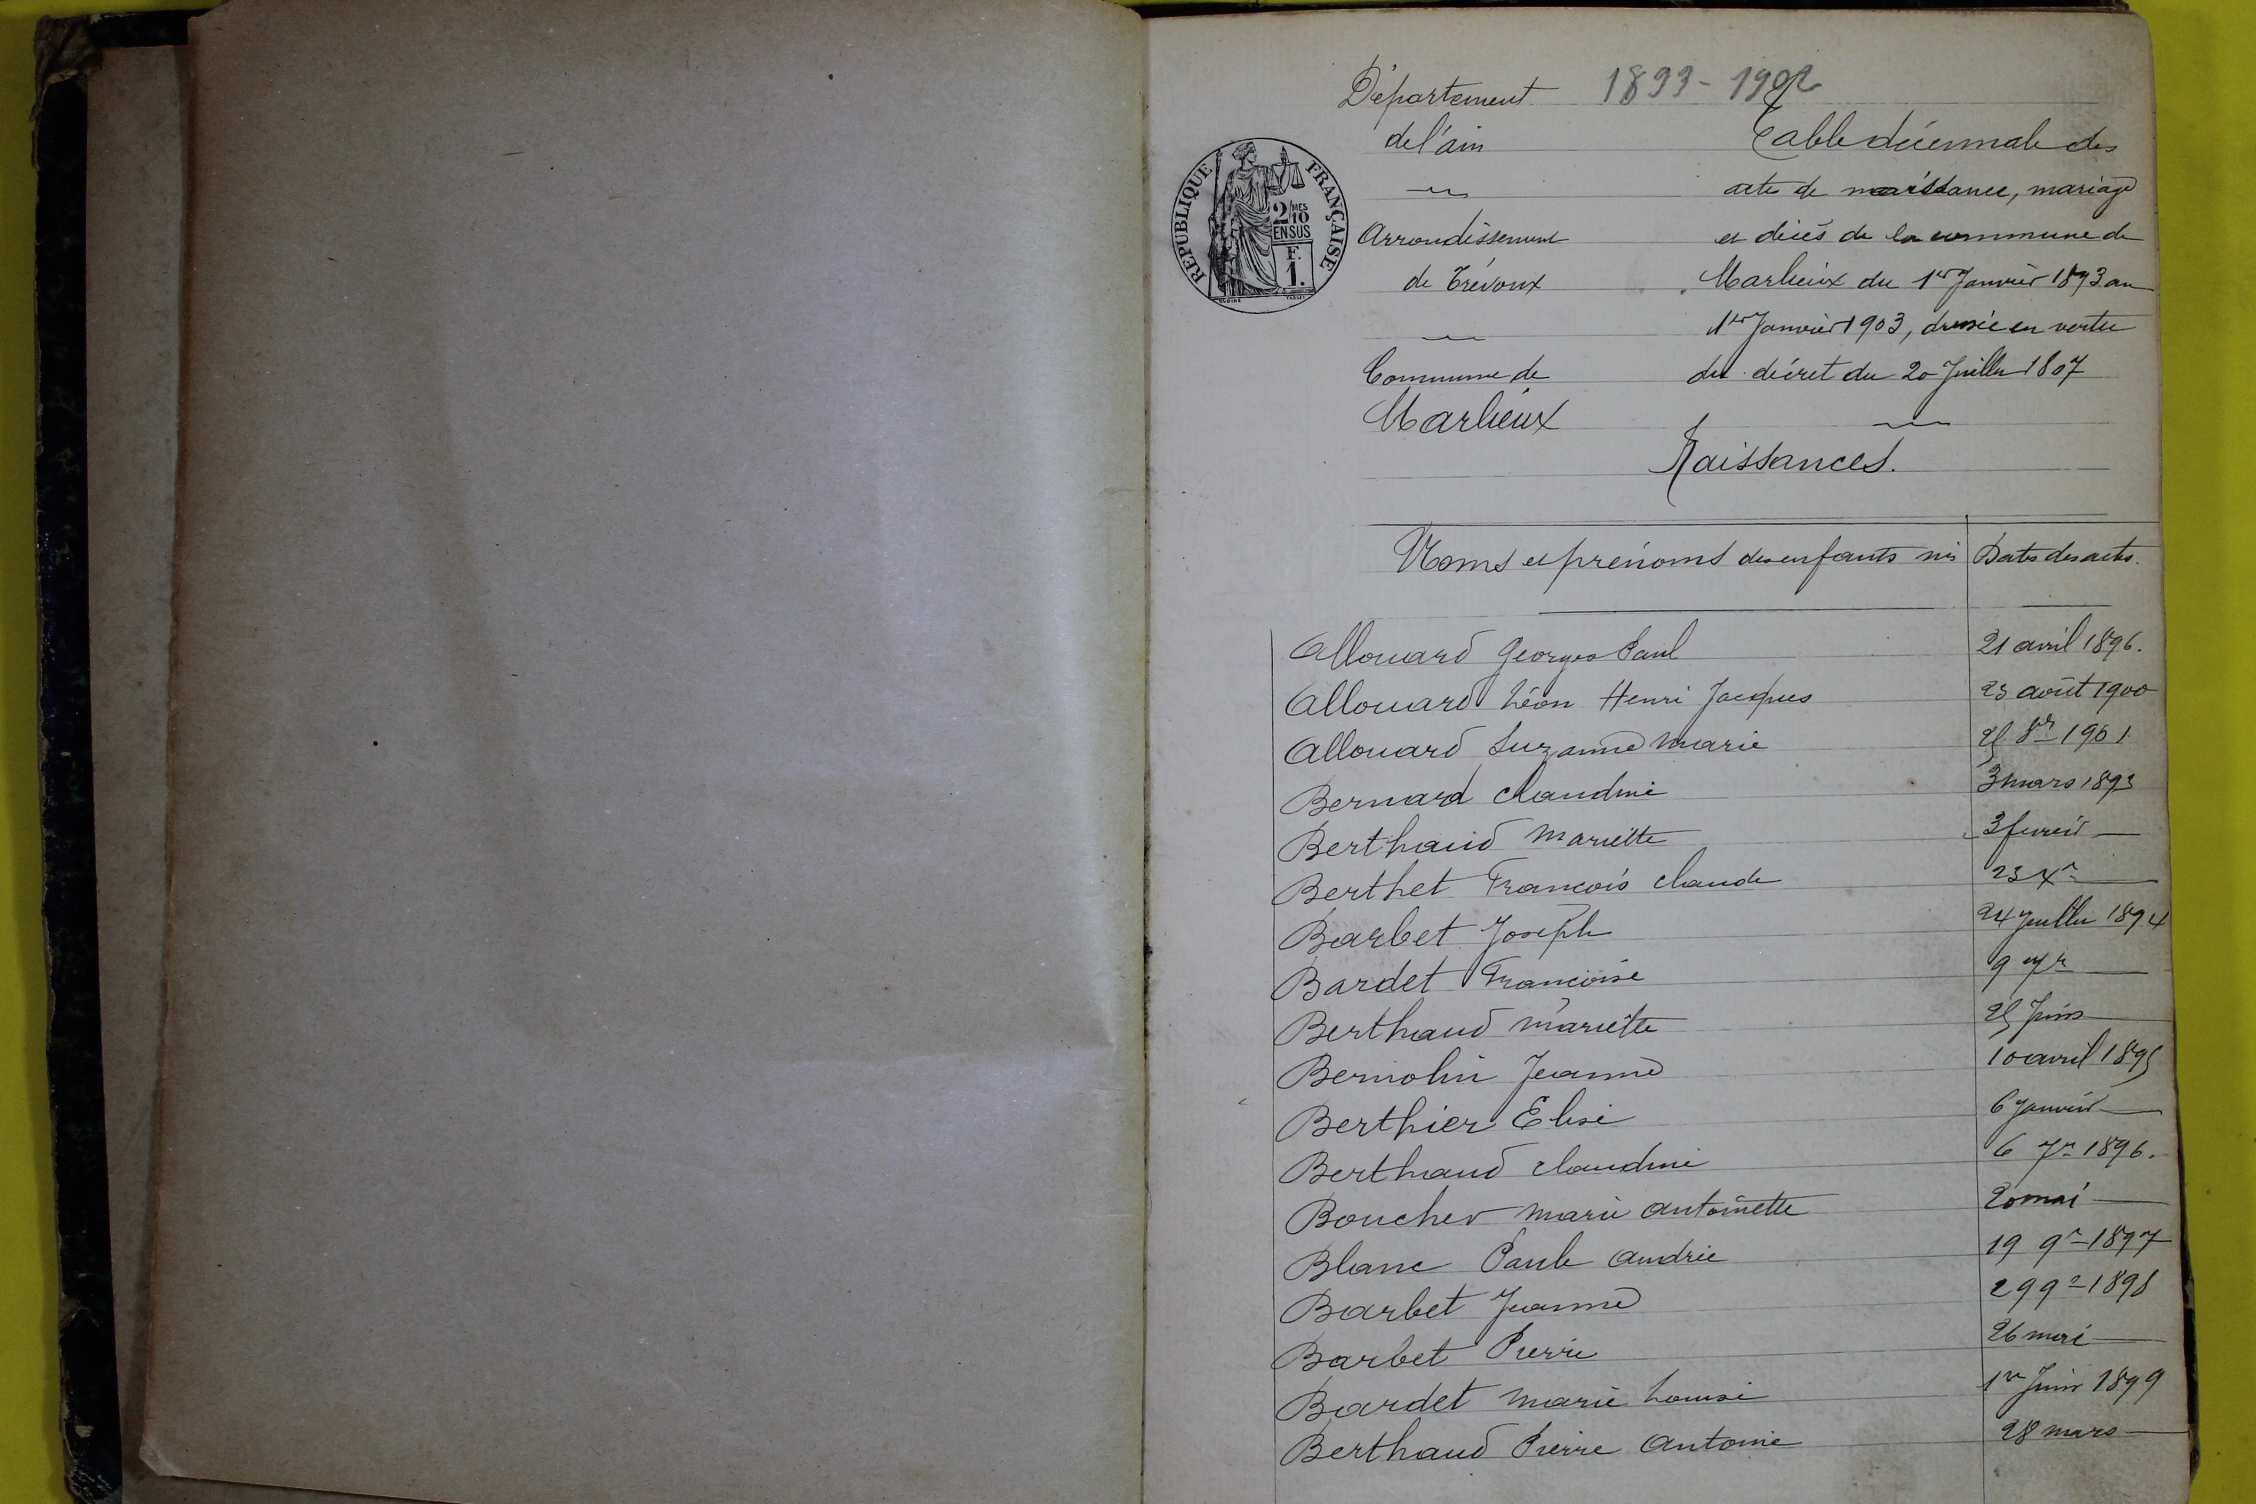 1893-1902
Département
de l'ain
Arrondissement
de Trévoux
Commune de
Marlieux
RÉPUBLIQUE FRANÇAISE
2/MES
10
EN SUS
F.
1.
Table décennale des
actes de naissance, mariage
et décès de la commune de
Marlieux du 1er Janvier 1893 au
1er Janvier 1903, dressée en vertu
du décret du 20 Juillet 1807
Naissances.
Noms et prénoms des enfants nés Dates des actes.
Allouard Georges Paul 21 avril 1896.
Allouard Léon Henri Jacques 23 août 1900
Allouard Suzanne Marie 25 8r 1901
Bernard Claudine 3 mars 1893
Berthaud Mariette 3 fevrier —
Berthet François Claude 23 Xr —
Barbet Joseph 24 Juillet 1894
Bardet Françoise 9 —
Berthaud Mariette 25 Juin —
Bernolin Jeanne 10 avril 1895
Berthier Elise 6 Janvier —
Berthaud Claudine 6 7r 1896.
Boucher Marie Antoinette 20 mai —
Blanc Paule Andrée 19 9r 1897
Barbet Jeanne 29 9r 1898
Barbet Pierre 26 mai —
Bardet Marie Louise 1er Juin 1899
Berthaud Pierre Antoine 28 mars —